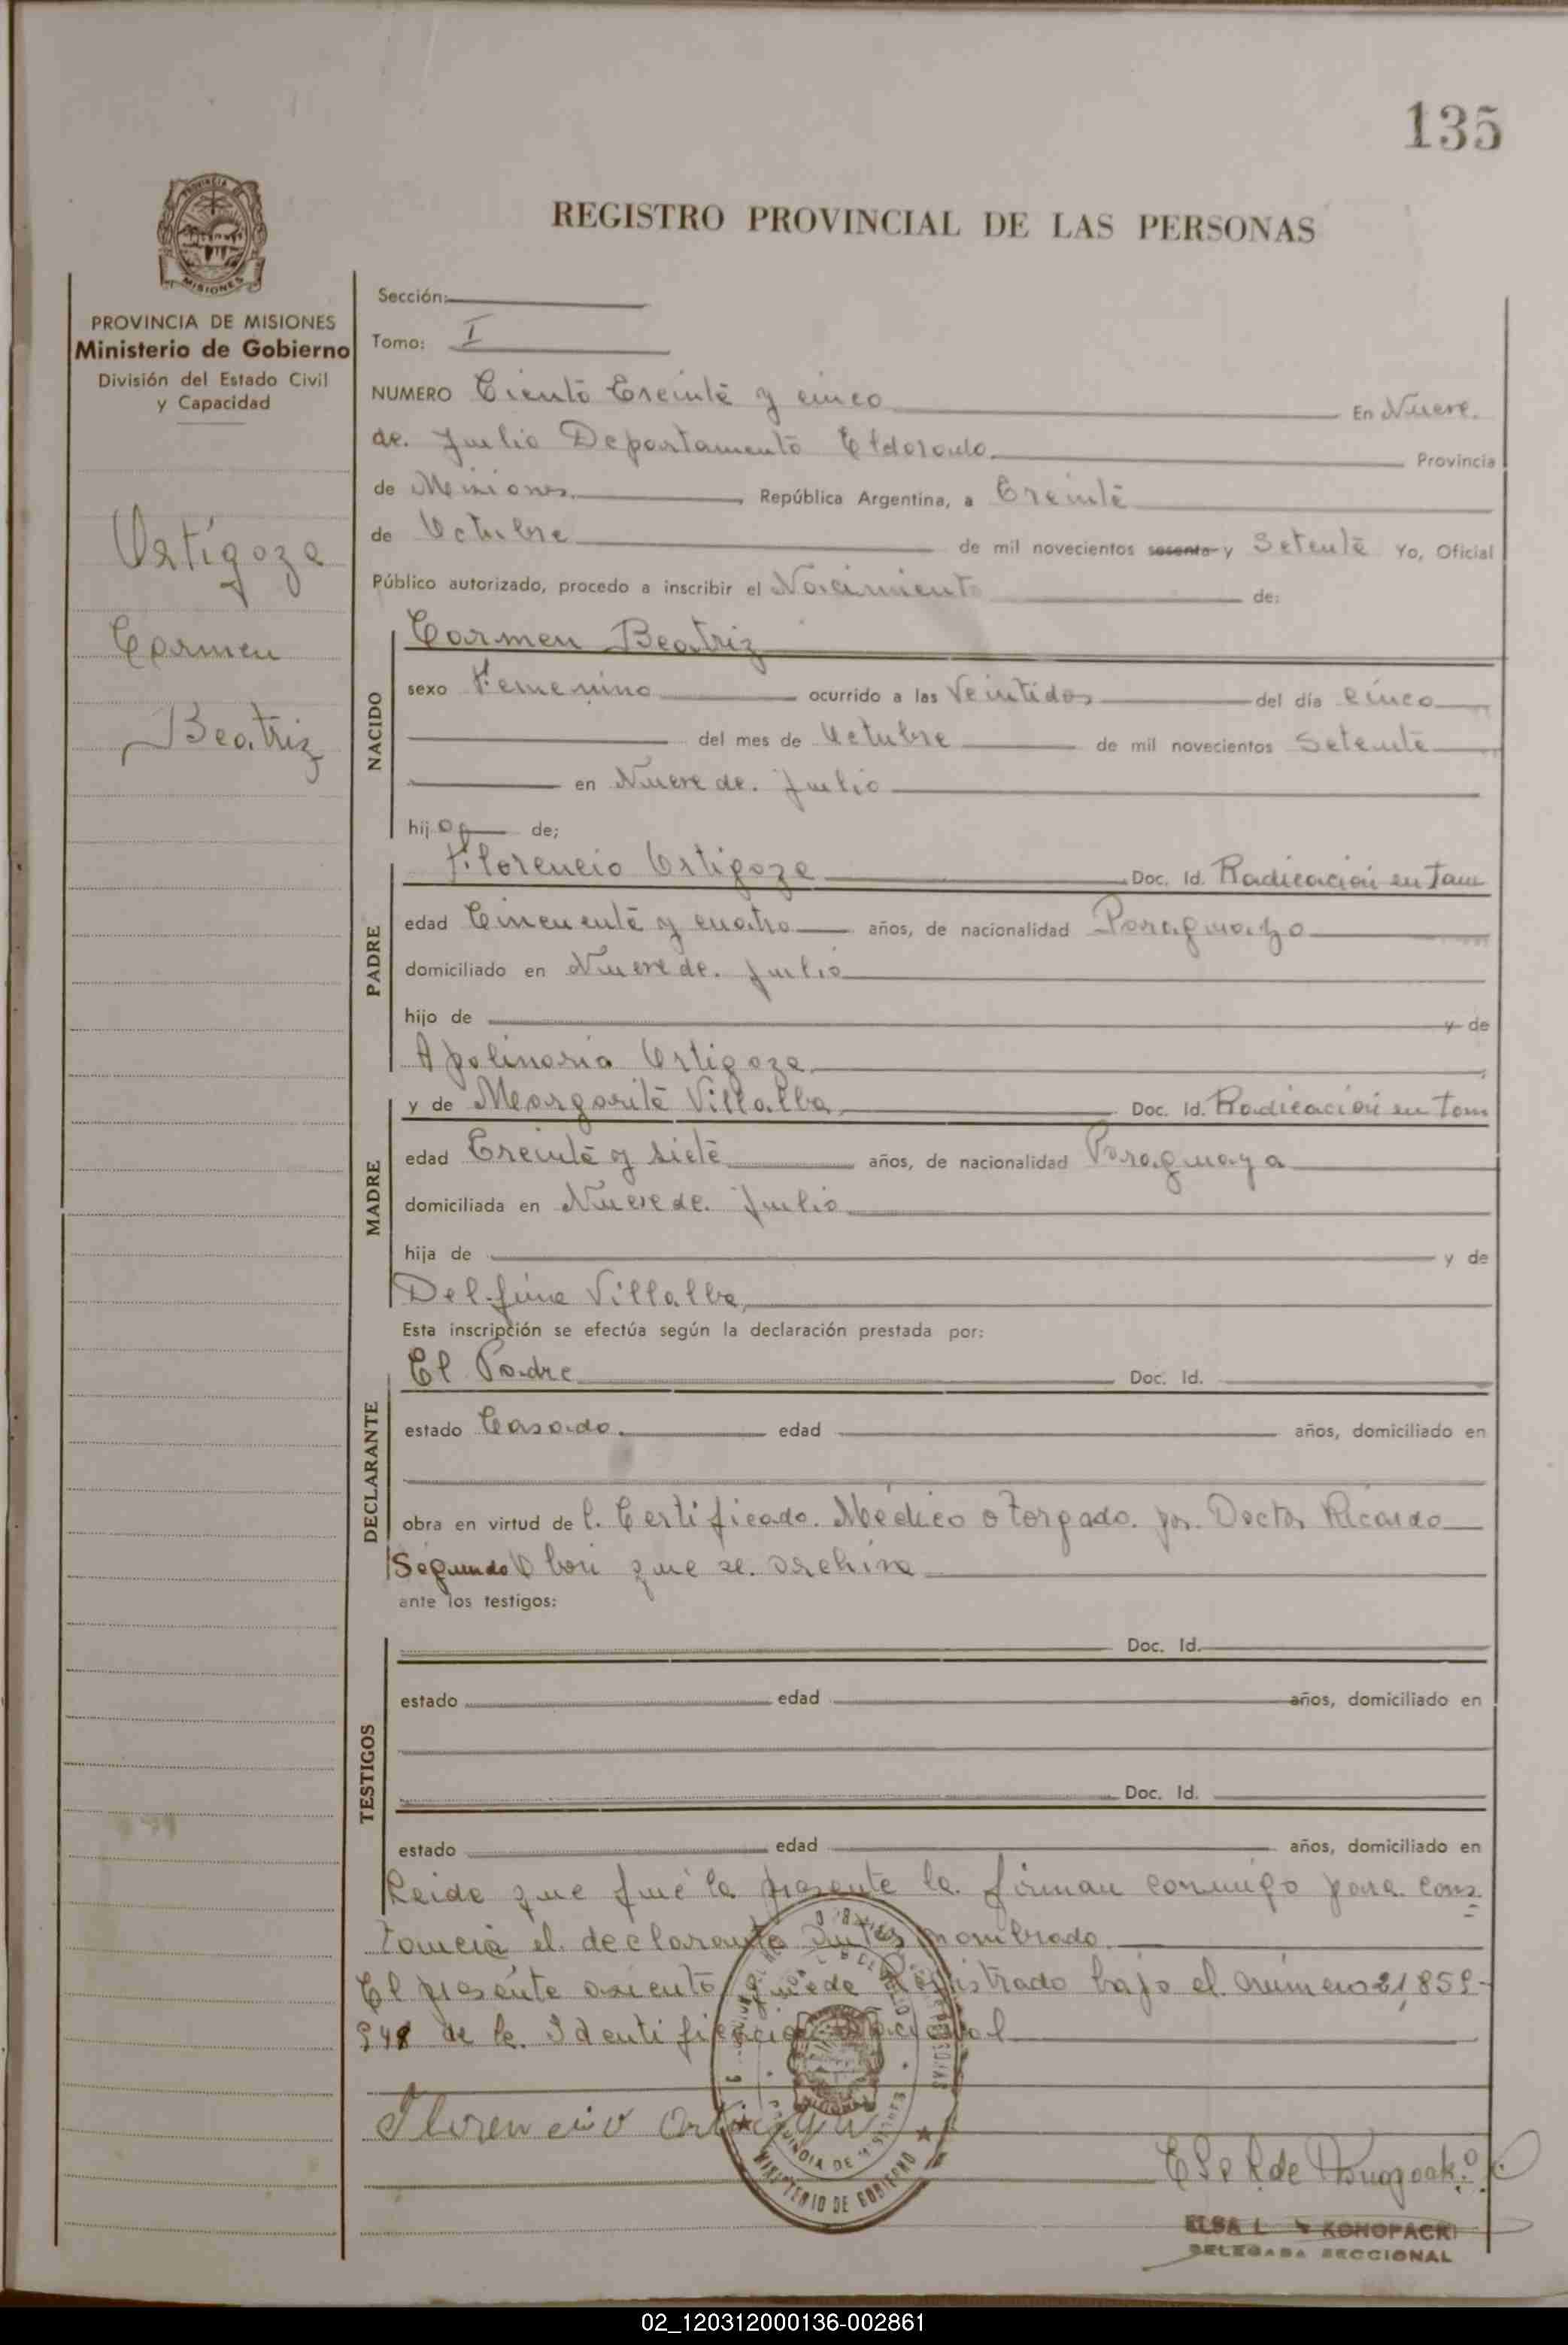 135
REGISTRO PROVINCIAL DE LAS PERSONAS
PROVINCIA DE MISIONES
Ministerio de Gobierno
División del Estado Civil
y Capacidad
Ortigoza
Carmen
Beatriz
Sección:
Tomo: I
NUMERO Ciento Treinta y cinco En Nueve
de Julio Departamento Eldorado Provincia
de Misiones, República Argentina, a Treinta
de Octubre de mil novecientos sesenta y Setenta Yo, Oficial
Público autorizado, procedo a inscribir el Nacimiento de:
NACIDO
Carmen Beatriz
sexo Femenino ocurrido a las Veintidos del día cinco
del mes de Octubre de mil novecientos Setenta
en Nueve de Julio
hija de;
PADRE
Florencio Ortigoza Doc. Id. Radicación en Tam
edad Cincuenta y cuatro años, de nacionalidad Paraguayo
domiciliado en Nueve de Julio
hijo de y de
Apolinaria Ortigoza
MADRE
y de Margarita Villalba Doc. Id. Radicación en Tam
edad Treinta y siete años, de nacionalidad Paraguaya
domiciliada en Nueve de Julio
hija de y de
Delfina Villalba
Esta inscripción se efectúa según la declaración prestada por:
DECLARANTE
El Padre Doc. Id.
estado Casado. edad años, domiciliado en
obra en virtud del Certificado Médico otorgado por Doctor Ricardo
Segundo que se archiva
ante los testigos:
TESTIGOS
Doc. Id.
estado edad años, domiciliado en
Doc. Id.
estado edad años, domiciliado en
Leida que fué la presente la firman conmigo para cons
tancia el declarante antes nombrado.
El presente asiento queda Registrado bajo el número 21,859-
948 de la Identificación Nacional
Florencio Ortigoza
MINISTERIO DE GOBIERNO
PROVINCIA DE MISIONES
ELSA L KONOPACKI
DELEGADA SECCIONAL
02_120312000136-002861